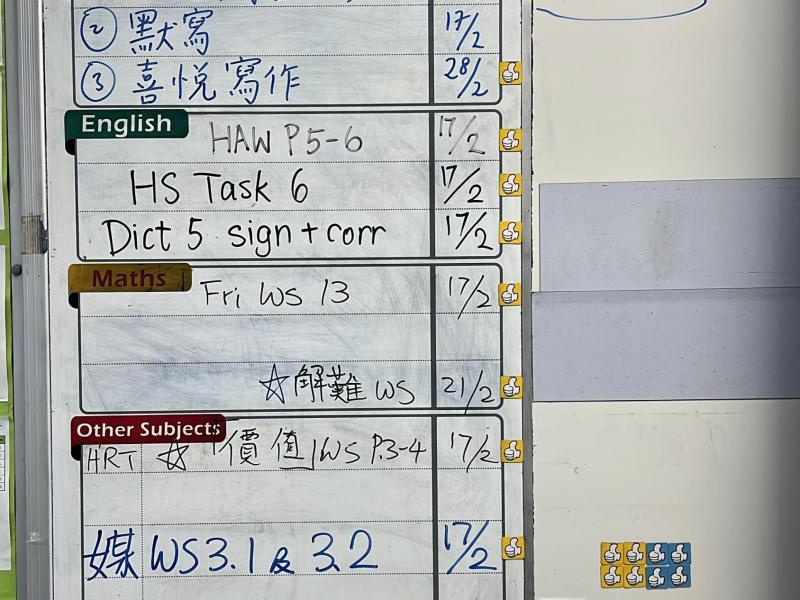 ② 默寫 17/2
③ 喜悅寫作 28/2
English HAW P5-6 17/2
HS Task 6 17/2
Dict 5 sign + corr 17/2
Maths Fri WS 13 17/2
☆解難 WS 21/2
Other Subjects
HRT ☆「價值」WS P.3-4 17/2
媒 WS3.1 & 3.2 17/2